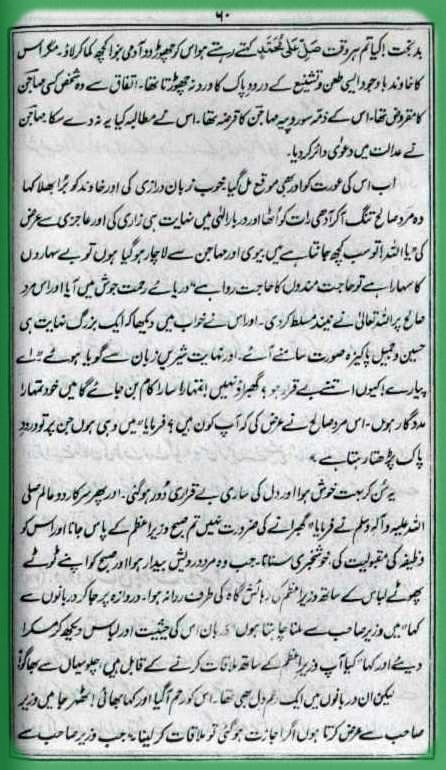 ۶۰
بدبخت! کیا تم ہر وقت صَلِّ عَلیٰ مُحَمَّدٍ کہتے رہتے ہو اس کو چھوڑ دو آدمی بنو کچھ کما کر لاؤ۔ مگر اس
کا خاوند باوجود ایسی طعن و تشنیع کے درودِ پاک کا ورد نہ چھوڑتا تھا۔ اتفاق سے وہ شخص کسی مہاجن
کا مقروض تھا۔ اس کے ذمہ سو روپیہ مہاجن کا قرضہ تھا۔ اس نے مطالبہ کیا یہ نہ دے سکا۔ مہاجن
نے عدالت میں دعوٰی دائر کر دیا۔
اب اس کی عورت کو اور بھی موقع مل گیا، خوب زبان درازی کی اور خاوند کو بُرا بھلا کہا
وہ مردِ صالح تنگ آ کر آدھی رات کو اُٹھا اور دربارِ الٰہی میں نہایت ہی زاری کی اور عاجزی سے عرض
کی "یا اللہ! تو سب کچھ جانتا ہے میں بیوی اور مہاجن سے لاچار ہو گیا ہوں تو بے سہاروں
کا سہارا ہے تو حاجت مندوں کا حاجت روا ہے" دریائے رحمت جوش میں آیا اور اس مردِ
صالح پر اللہ تعالیٰ نے نیند مسلط کر دی۔ اور اس نے خواب میں دیکھا کہ ایک بزرگ نہایت ہی
حسین و جمیل پاکیزہ صورت سامنے آئے۔ اور نہایت شیریں زبان سے گویا ہوئے "اے
پیارے! کیوں اتنے بے قرار ہو؟ گھبراؤ نہیں! تمہارا سارا کام بن جائے گا میں خود تمہارا
مددگار ہوں۔ اس مردِ صالح نے عرض کی کہ آپ کون ہیں؟ فرمایا "میں وہی ہوں جن پر تو درودِ
پاک پڑھتا رہتا ہے۔"
یہ سُن کر بہت خوش ہوا اور دل کی ساری بے قراری دُور ہو گئی۔ اور پھر سرکارِ دو عالم صلی
اللہ علیہ وآلہٖ وسلم نے فرمایا "گھبرانے کی ضرورت نہیں تم صبح وزیرِ اعظم کے پاس جانا اور اس کو
وظیفہ کی مقبولیت کی خوشخبری سنانا۔ جب وہ مردِ درویش بیدار ہوا اور صبح کو اپنے ٹوٹے
پھوٹے لباس کے ساتھ وزیرِ اعظم کی رہائش گاہ کی طرف روانہ ہوا۔ دروازہ پر جا کر دربانوں سے
کہا "میں وزیر صاحب سے ملنا چاہتا ہوں" دربان اس کی حیثیت اور لباس دیکھ کر مسکرا
دیئے اور کہا "کیا آپ وزیرِ اعظم کے ساتھ ملاقات کرنے کے قابل ہیں؟ چلو یہاں سے بھاگو!"
لیکن ان دربانوں میں ایک رحم دل بھی تھا۔ اس کو رحم آ گیا اور کہا بھائی! ٹھہر جا میں وزیر
صاحب سے عرض کرتا ہوں اگر اجازت ہو گئی تو ملاقات کر لینا۔ جب وزیر صاحب سے